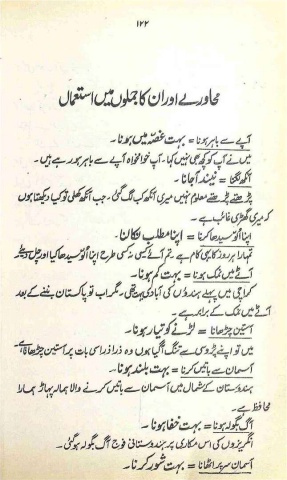 ۱۲۲
محاورے اور ان کا جملوں میں استعمال
آپے سے باہر ہونا = بہت غصہ میں ہونا۔
میں نے آپ کو کچھ بھی نہیں کہا۔ آپ خوامخواہ آپے سے باہر ہو رہے ہیں۔
آنکھ لگنا = نیند آ جانا۔
پڑھتے پڑھتے معلوم نہیں میری آنکھ کب لگ گئی۔ جب آنکھ کھلی تو کیا دیکھتا ہوں
کہ میری گھڑی غائب ہے۔
اپنا الّو سیدھا کرنا = اپنا مطلب نکالنا۔
تمہارا ہر روز کا یہی کام ہے۔ تم آئے کسی نہ کسی طرح اپنا الّو سیدھا کیا اور چل دیئے
آٹے میں نمک ہونا = بہت کم ہونا۔
کراچی میں پہلے ہندوؤں کی آبادی بہت تھی۔ مگر اب تو پاکستان بننے کے بعد
آٹے میں نمک کے برابر ہے۔
آستین چڑھانا = لڑنے کو تیار ہونا۔
میں تو اپنے پڑوسی سے تنگ آ گیا ہوں وہ ذرا ذرا سی بات پر آستین چڑھاتا ہے۔
آسمان سے باتیں کرنا = بہت بلند ہونا۔
ہندوستان کے شمال میں آسمان سے باتیں کرنے والا ہمالہ پہاڑ ہمارا
محافظ ہے۔
آگ بگولہ ہونا = بہت خفا ہونا۔
انگریزوں کی اس مکاری پر ہندوستانی فوج آگ بگولہ ہو گئی۔
آسمان سر پر اٹھانا = بہت شور کرنا۔